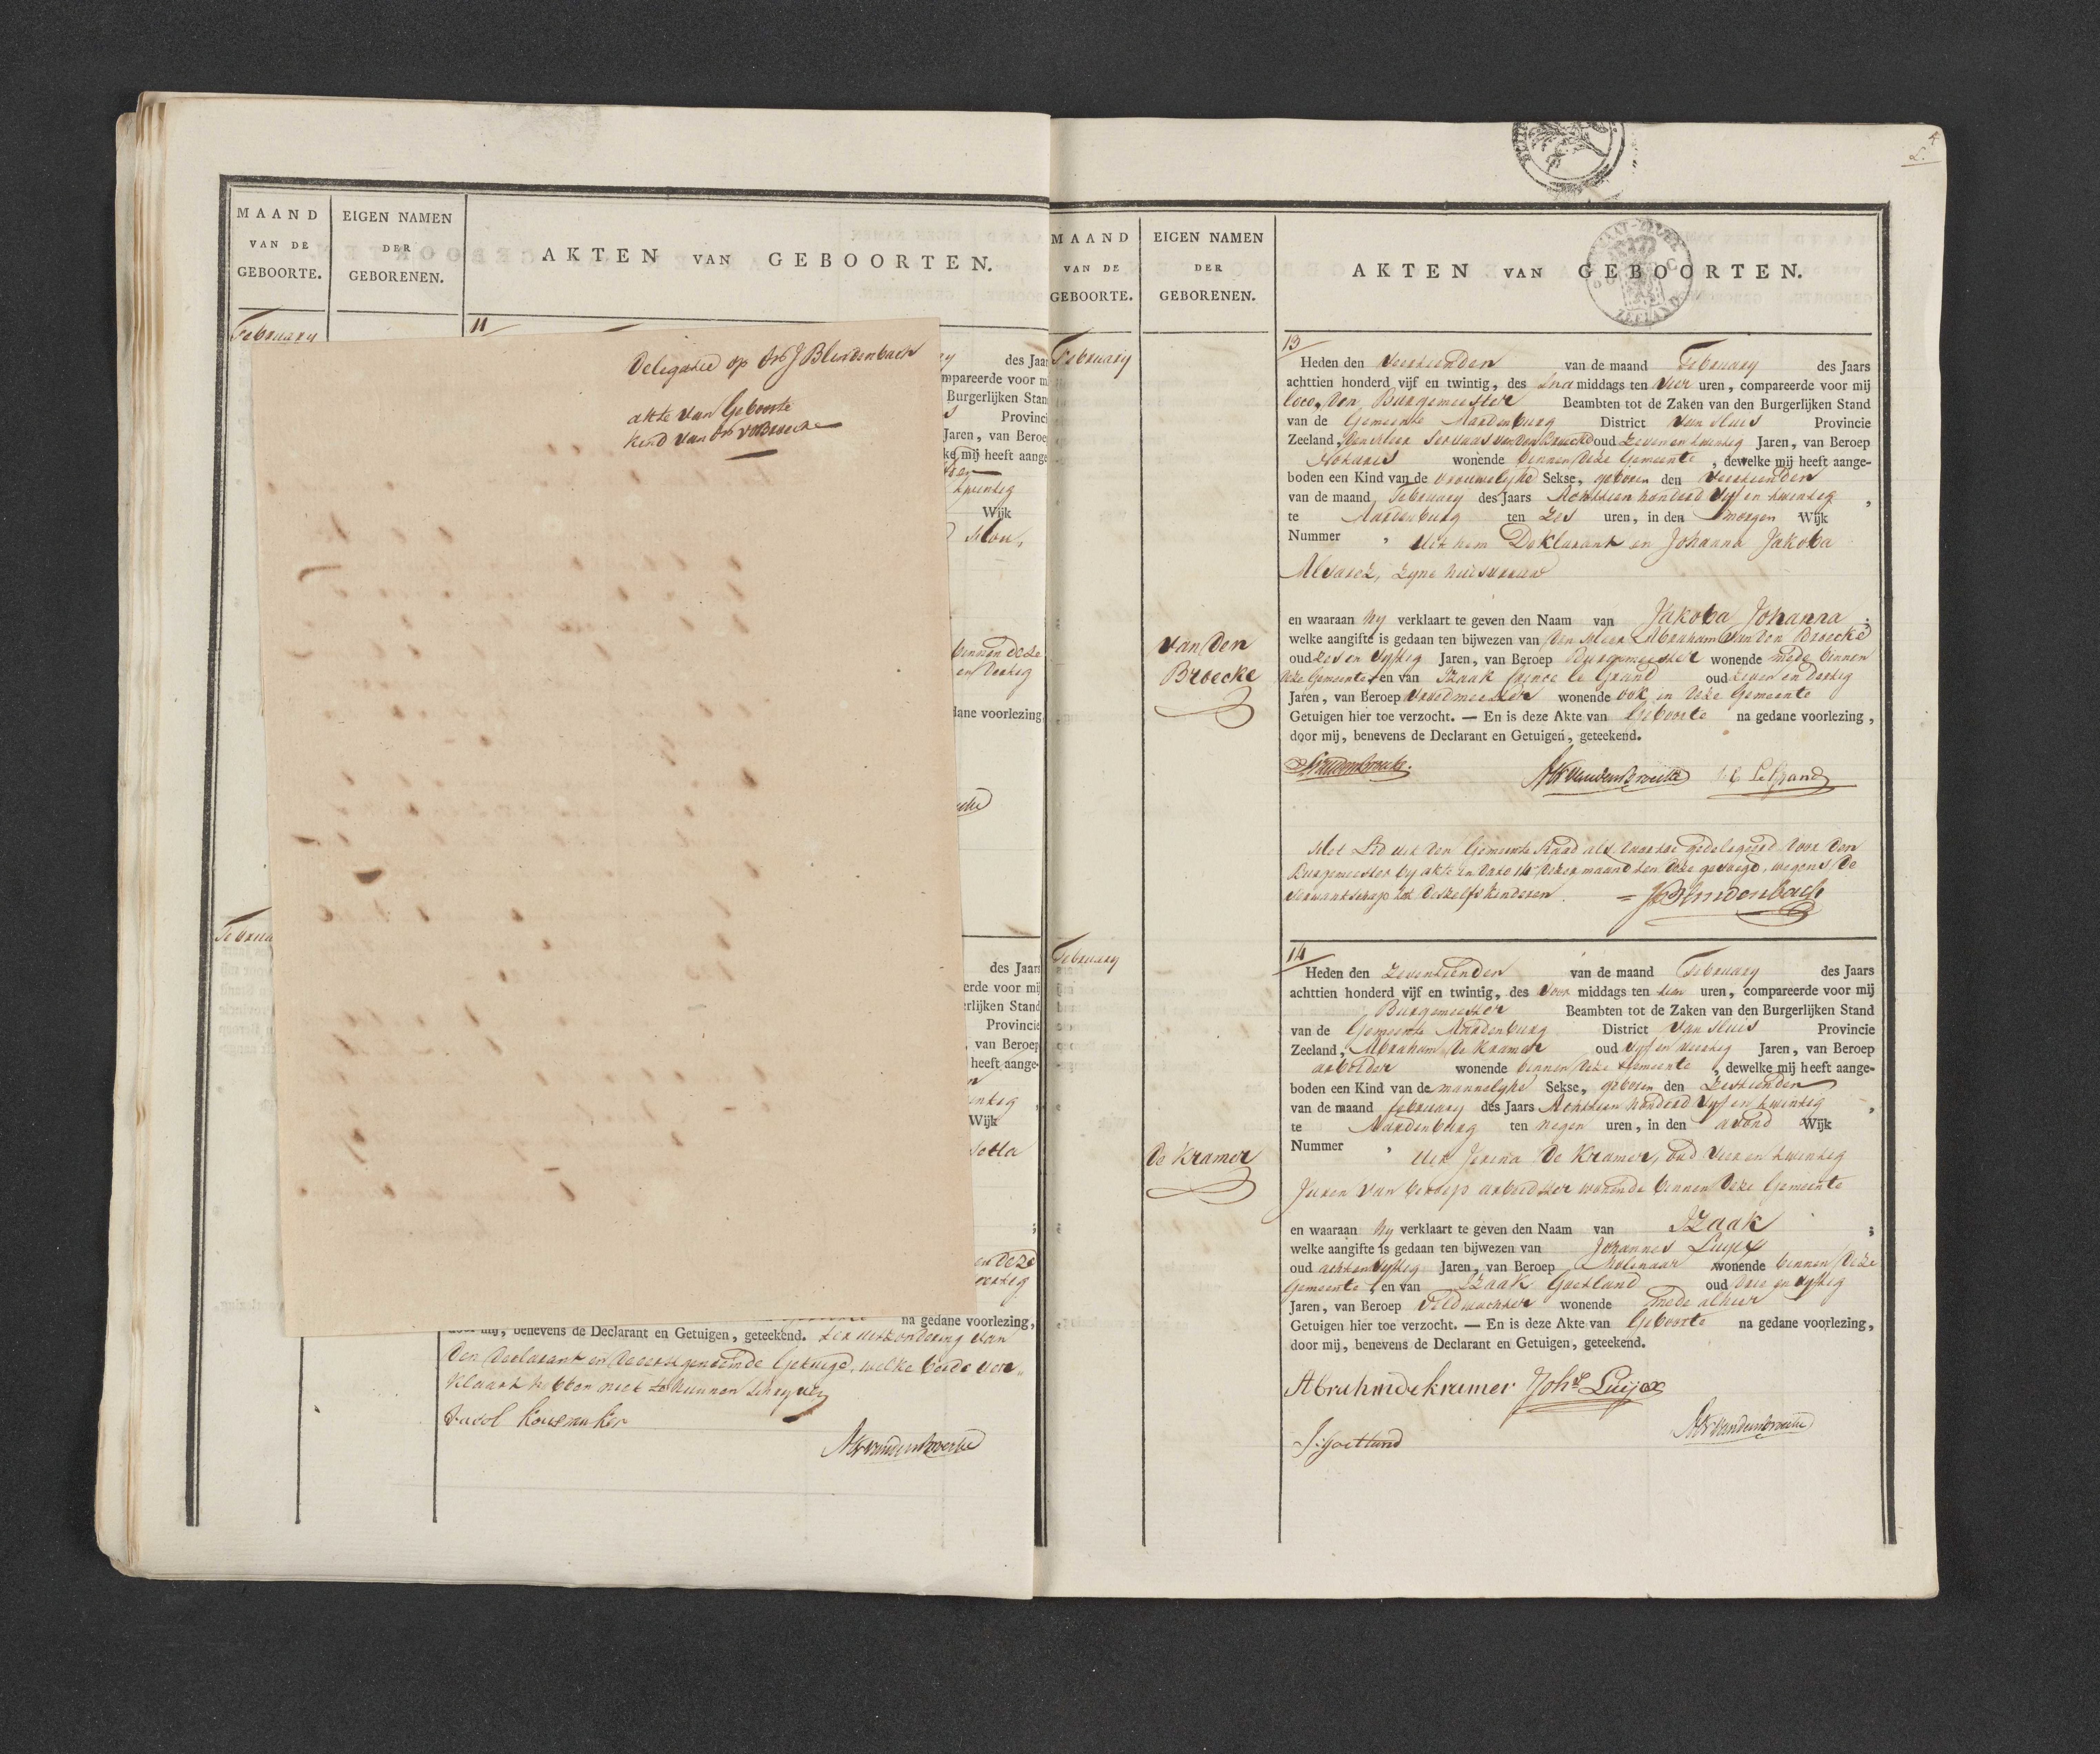 MAAND
VAN DE
GEBOORTE.
EIGEN NAMEN
DER
GEBORENEN.
AKTEN VAN GEBOORTEN.
February
11
Delegatie op
akte van Geboorte
Kind van
des Jaar
mpareerde voor m
Burgerlijken Stan
Provinci
Jaren, van Beroe
ke mij heeft aange
twintig
Wijk
binnen deze
en dertig
dane voorlezing
des Jaars
erde voor mij
erlijken Stand
Provincie
van Beroep
heeft aange-
Wijk
en deze
na gedane voorlezing,
door mij, benevens de Declarant en Getuigen, geteekend. ter uitzondering van
den Declarant en de eerstgenoemde Getuige, welke beide ver-
klaard hebben niet te kunnen schryven
MAAND
VAN DE
GEBOORTE.
EIGEN NAMEN
DER
GEBORENEN.
AKTEN VAN GEBOORTEN.
ZEELAND
February
13
Heden den veertienden van de maand February des Jaars
achttien honderd vijf en twintig, des na middags ten vier uren, compareerde voor mij
loco, den Burgemeester Beambten tot de Zaken van den Burgerlijken Stand
van de Gemeente Aardenburg District van Sluis Provincie
Zeeland, den Heer Servaas van den Broecke oud zeven en twintig Jaren, van Beroep
Notaris wonende binnen deze Gemeente, dewelke mij heeft aange-
boden een Kind van de vrouwelyke Sekse, geboren den veertienden
van de maand February des Jaars Achttien honderd vyf en twintig,
te Aardenburg ten zes uren, in den morgen Wijk
Nummer , uit hem Deklarant en Johanna Jakoba
Alvarez, zyne huisvrouw
en waaraan hy verklaart te geven den Naam van Jakoba Johanna;
welke aangifte is gedaan ten bijwezen van den Heer Abraham van den Broecke
oud zes en vyftig Jaren, van Beroep Burgemeester wonende mede binnen
deze Gemeente, en van Izaak Prince le Grand oud zeven en dertig
Jaren, van Beroep vroedmeester wonende ook in deze Gemeente
Getuigen hier toe verzocht. — En is deze Akte van Geboorte na gedane voorlezing,
door mij, benevens de Declarant en Getuigen, geteekend.
van den
Broecke
Le Grand
Het Lid uit den Gemeente Raad als daartoe gedelegeerd door den
Burgemeester by akte in dato 14 dezer maand ten deze gevoegd, wegens de
verwantschap tot deszelfs kinderen.
February
14
Heden den zeventienden van de maand February des Jaars
achttien honderd vijf en twintig, des voor middags ten tien uren, compareerde voor mij
Burgemeester Beambten tot de Zaken van den Burgerlijken Stand
van de Gemeente Aardenburg District van Sluis Provincie
Zeeland, Abraham de Kramer oud vyf en veertig Jaren, van Beroep
arbeider wonende binnen deze Gemeente, dewelke mij heeft aange-
boden een Kind van de mannelyke Sekse, geboren den zestienden
van de maand february des Jaars Achttien honderd vyf en twintig,
te Aardenburg ten negen uren, in den avond Wijk
Nummer , uit Janna de Kramer, oud vier en twintig
Jaren van beroep arbeidster wonende binnen deze Gemeente
en waaraan hy verklaart te geven den Naam van Izaak;
welke aangifte is gedaan ten bijwezen van Johannes Luyex
oud acht en vyftig Jaren, van Beroep Molenaar wonende binnen deze
Gemeente, en van Izaak Goetland oud drie en vyftig
Jaren, van Beroep Veldwachter wonende mede alhier
Getuigen hier toe verzocht. — En is deze Akte van Geboorte na gedane voorlezing,
door mij, benevens de Declarant en Getuigen, geteekend.
de Kramer
Abrahmdekramer Johs Luijex
J: Goetland